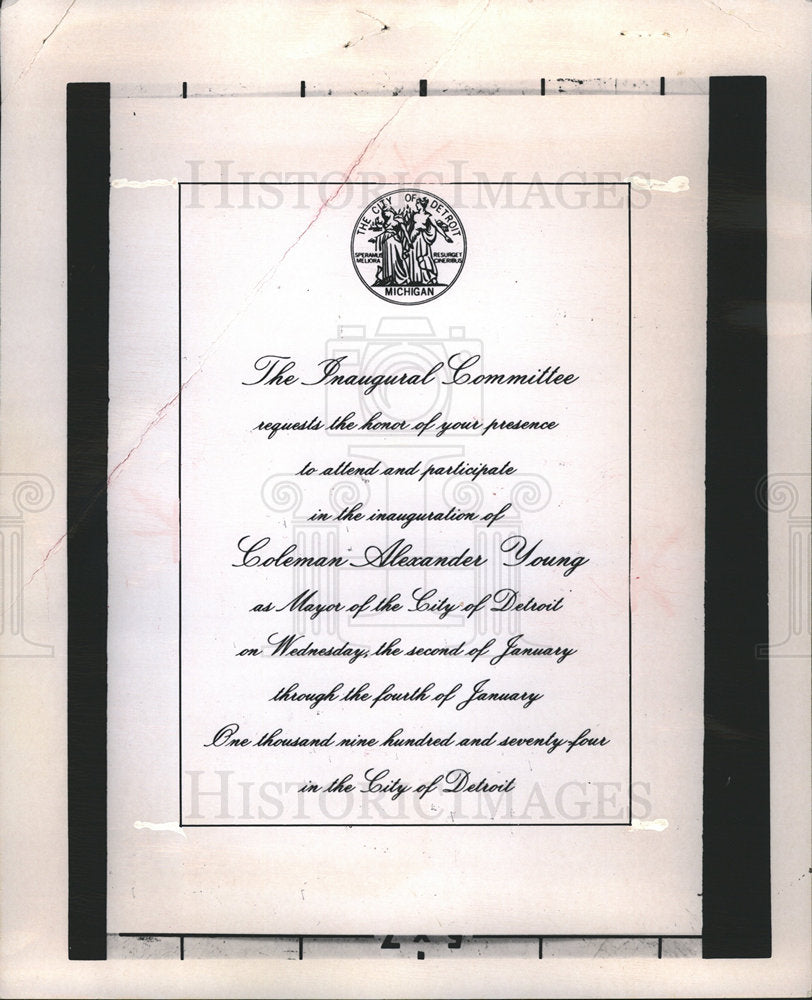 HISTORIC IMAGES
THE CITY OF DETROIT
SPERAMUS MELIORA
RESURGET CINERIBUS
MICHIGAN
The Inaugural Committee
requests the honor of your presence
to attend and participate
in the inauguration of
Coleman Alexander Young
as Mayor of the City of Detroit
on Wednesday, the second of January
through the fourth of January
One thousand nine hundred and seventy-four
in the City of Detroit
HISTORIC IMAGES
5 x 7